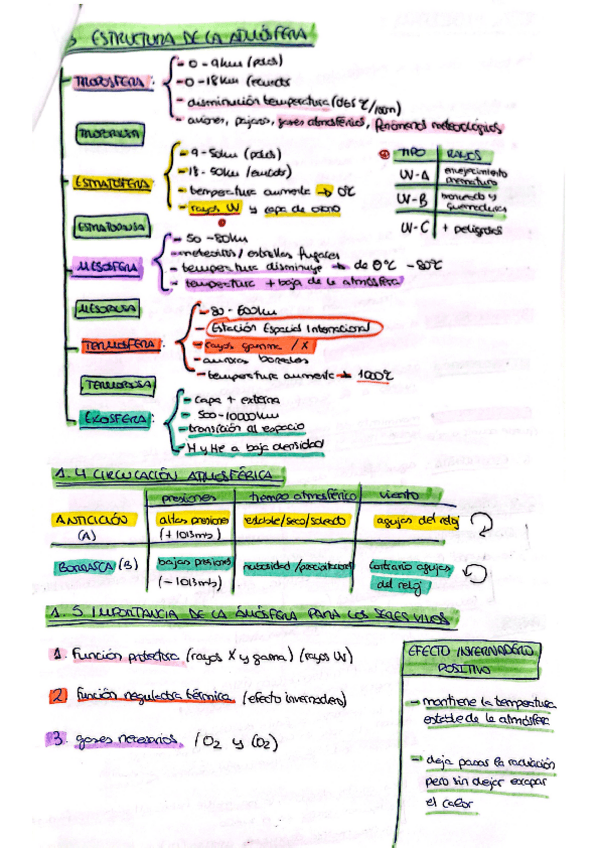 3 ESTRUCTURA DE LA ATMÓSFERA
TROPOSFERA:
- 0-9km (polos)
- 0-18km (ecuador)
- disminución temperatura (0'65ºC/100m)
- aviones, pájaros, gases atmosféricos, fenómenos meteorológicos
TROPOPAUSA
ESTRATOSFERA
- 9-50km (polos)
- 18-50km (ecuador)
- temperatura aumenta → 0ºC
- rayos UV y capa de ozono
TIPO RAYOS
UV-A envejecimiento prematuro
UV-B bronceado y quemaduras
UV-C + peligrosos
ESTRATOPAUSA
MESOSFERA
- 50-80km
- meteoritos/estrellas fugaces
- temperatura disminuye → de 0ºC -80ºC
- temperatura + baja de la atmósfera
MESOPAUSA
TERMOSFERA:
- 80-600km
- Estación Espacial Internacional
- rayos gamma / X
- auroras boreales
- temperatura aumenta → 1000ºC
TERMOPAUSA
EXOSFERA:
- capa + externa
- 500-10000km
- transición al espacio
- H y He a baja densidad
1.4 CIRCULACIÓN ATMOSFÉRICA
presiones tiempo atmosférico viento
ANTICICLÓN (A) altas presiones (+1013mb) estable/seco/soleado agujas del reloj
BORRASCA (B) bajas presiones (-1013mb) nubosidad/precipitaciones contrario agujas del reloj
1.5 IMPORTANCIA DE LA ATMÓSFERA PARA LOS SERES VIVOS
1. Función protectora (rayos X y gama) (rayos UV)
2. Función reguladora térmica (efecto invernadero)
3. gases necesarios. (O2 y CO2)
EFECTO INVERNADERO
POSITIVO
- mantiene la temperatura
estable de la atmósfera
- deja pasar la radiación
pero sin dejar escapar
el calor